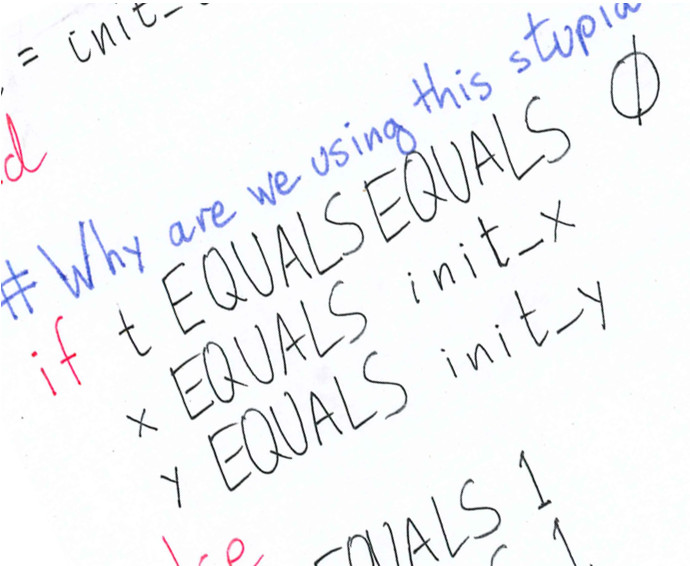 = init_
d
# Why are we using this stupid
if t EQUALSEQUALS 0
x EQUALS init_x
y EQUALS init_y
EQUALS 1
1